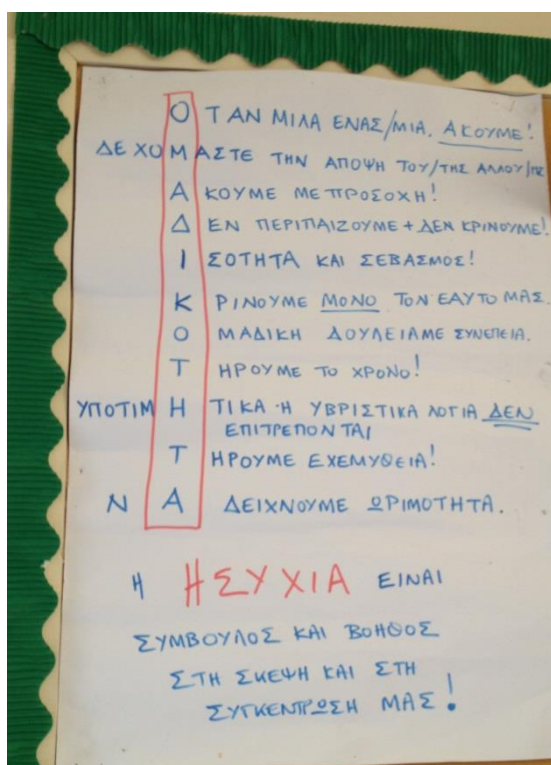 ΟΤΑΝ ΜΙΛΑ ΕΝΑΣ/ΜΙΑ. ΑΚΟΥΜΕ!
ΔΕΧΟΜΑΣΤΕ ΤΗΝ ΑΠΟΨΗ ΤΟΥ/ΤΗΣ ΑΛΛΟΥ/ΗΣ
ΑΚΟΥΜΕ ΜΕ ΠΡΟΣΟΧΗ!
ΔΕΝ ΠΕΡΙΠΑΙΖΟΥΜΕ + ΔΕΝ ΚΡΙΝΟΥΜΕ!
ΙΣΟΤΗΤΑ ΚΑΙ ΣΕΒΑΣΜΟΣ!
ΚΡΙΝΟΥΜΕ ΜΟΝΟ ΤΟΝ ΕΑΥΤΟ ΜΑΣ.
ΟΜΑΔΙΚΗ ΔΟΥΛΕΙΑ ΜΕ ΣΥΝΕΠΕΙΑ.
ΤΗΡΟΥΜΕ ΤΟ ΧΡΟΝΟ!
ΥΠΟΤΙΜΗΤΙΚΑ Ή ΥΒΡΙΣΤΙΚΑ ΛΟΓΙΑ ΔΕΝ
ΕΠΙΤΡΕΠΟΝΤΑΙ
ΤΗΡΟΥΜΕ ΕΧΕΜΥΘΕΙΑ!
ΝΑ ΔΕΙΧΝΟΥΜΕ ΩΡΙΜΟΤΗΤΑ.
Η ΗΣΥΧΙΑ ΕΙΝΑΙ
ΣΥΜΒΟΥΛΟΣ ΚΑΙ ΒΟΗΘΟΣ
ΣΤΗ ΣΚΕΨΗ ΚΑΙ ΣΤΗ
ΣΥΓΚΕΝΤΡΩΣΗ ΜΑΣ!